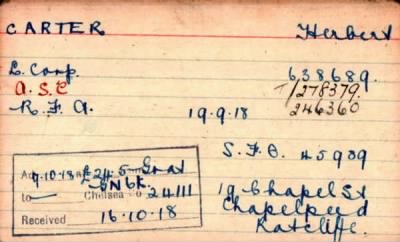 CARTER Herbert
L. Corp. 638689.
A.S.C T/278379.
R.F.A. 19.9.18 246360
S.F.B. 45989
9.10.18 £24.5 Grat
to Chelsea 24111 19 Chapel St
Chapelpeed
Received 16.10.18 Ratcliffe.